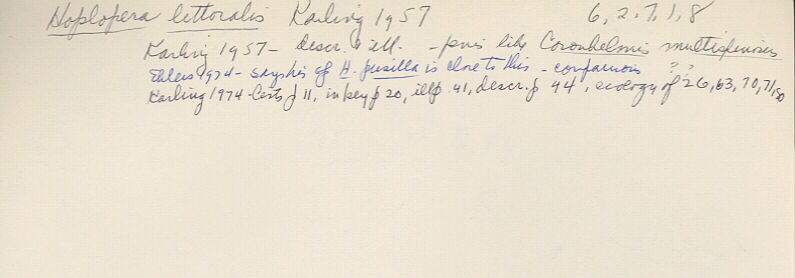 Hoplopera littoralis Karling 1957 6, 2, 7, 1, 8
Karling 1957 - descr. & ill. - penis like Coronhelmis multispinosus
Ehlers 1974 - says his of H. pusilla is close to this - comparison ? ?
Karling 1974 - lists p 11, in key p 20, ill p. 41, descr. p 44, ecology p 26, 63, 70, 71,